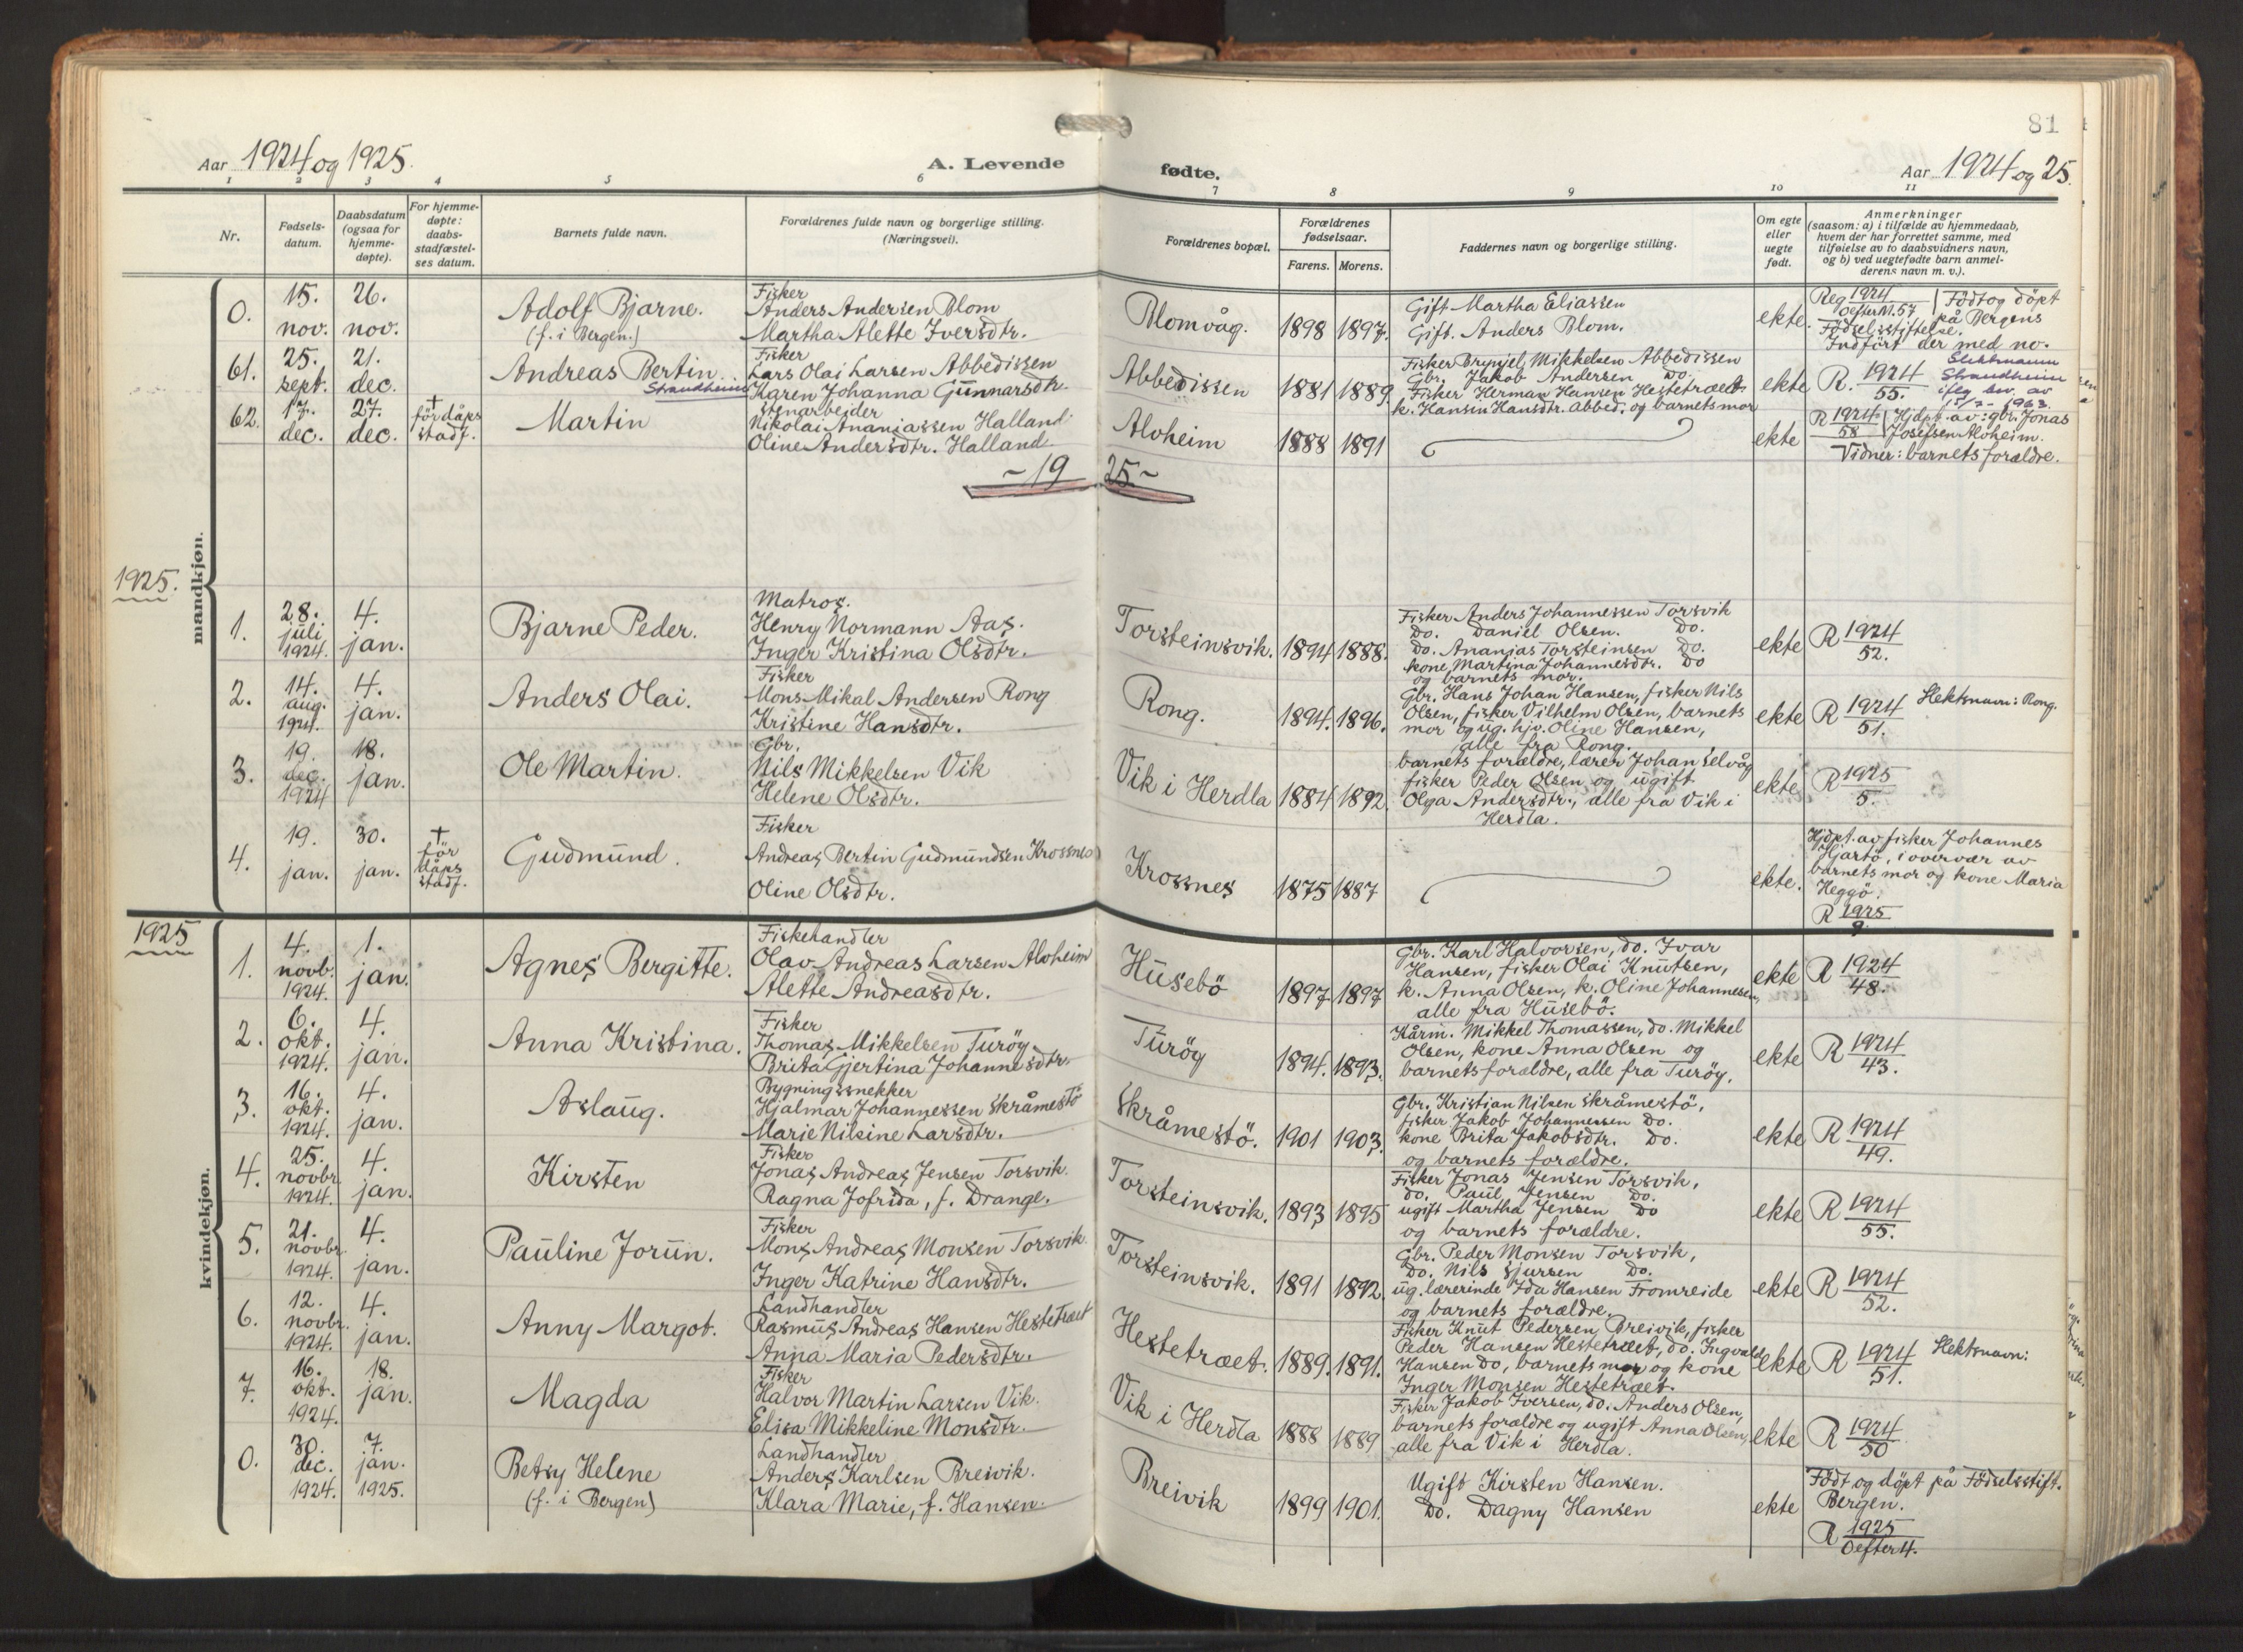 81
Aar 1924 og 1925.
A. Levende fødte.
Aar 1924 og 25.
1 2 3 4 5 6 7 8 9 10 11
Nr.
Fødsels-
datum.
Daabsdatum
(ogsaa for
hjemme-
døpte).
For hjemme-
døpte:
daabs-
stadfæstel-
ses datum.
Barnets fulde navn.
Forældrenes fulde navn og borgerlige stilling.
(Næringsvei).
Forældrenes bopæl.
Forældrenes
fødselsaar.
Farens. Morens.
Faddernes navn og borgerlige stilling.
Om egte
eller
uegte
født.
Anmerkninger
(saasom: a) i tilfælde av hjemmedaab,
hvem der har forrettet samme, med
tilføielse av to daabsvidners navn,
og b) ved uegtefødte barn anmel-
derens navn m. v.).
mandkjøn.
0.
15.
nov.
26.
nov.
Adolf Bjarne.
(f. i Bergen.)
Fisker
Anders Andersen Blom
Martha Alette Iversdtr.
Blomvåg.
1898
1897.
Gift Martha Eliassen
Gift. Anders Blom.
ekte.
Reg 1924
Oefter M. 57
Født og døpt
på Bergens
Fødselsstiftelse.
Indført der med no.
61.
25.
sept.
21.
dec.
Andreas Bertin.
Strandheim
Fisker
Lars Olai Larsen Abbedissen
Karen Johanna Gunnarsdtr.
Abbedissen
1881
1889.
Fisker Brynjel Mikkelsen Abbedissen
Gbr. Jakob Andersen Do.
Fisker Herman Hansen Hestetræet
k. Hansin Hansdtr. Abbed. og barnets mor
ekte
R. 1924
55.
Slektsnavn
Strandheim
iflg. bev. av
1963.
62.
17.
dec.
27.
dec.
†
før dåps
stadf.
Martin
Stenarbeider
Nikolai Ananiassen Halland
Oline Andersdtr. Halland.
Alvheim
1888
1891
ekte
R 1924
58
Hjdpt. av: gbr. Jonas
Josefsen Alvheim.
Vidner: barnets forældre.
~ 19 25 ~
1925.
1.
28.
juli
1924.
4.
jan.
Bjarne Peder.
Matros.
Henry Normann Aas.
Inger Kristina Olsdtr.
Torsteinsvik.
1894
1888.
Fisker Anders Johannessen Torsvik
Do. Daniel Olsen. Do.
Do. Ananias Torsteinsen Do.
kone Martina Johannesdtr. Do
og barnets mor.
ekte
R 1924
52.
2.
14.
aug.
1924.
4.
jan.
Anders Olai.
Fisker
Mons Mikal Andersen Rong
Kristine Hansdtr.
Rong.
1894.
1896.
Gbr. Hans Johan Hansen, fisker Nils
Olsen, fisker Vilhelm Olsen, barnets
mor og ug. hjv. Oline Hansen,
alle fra Rong.
ekte
R 1924
51.
Slektsnavn: Rong.
3.
19.
dec.
1924
18.
jan.
Ole Martin.
Gbr.
Nils Mikkelsen Vik
Helene Olsdtr.
Vik i Herdla
1884
1892.
barnets forældre, lærer Johan Selvåg
fisker Peder Olsen og ugift
Olga Andersdtr., alle fra Vik i
Herdla.
ekte
R 1925
5.
4.
19.
jan.
30.
jan.
†
før
dåps
stadf.
Gudmund.
Fisker
Andreas Bertin Gudmundsen Krossnes
Oline Olsdtr.
Krossnes
1875
1887
ekte.
Hjdpt. av fisker Johannes
Hjartö, i overvær av
barnets mor og kone Maria
Heggö.
R 1925
9.
1925
kvindekjøn.
1.
4.
novb.
1924.
1.
jan.
Agnes Bergitte.
Fiskehandler
Olav Andreas Larsen Alvheim
Alette Andreasdtr.
Husebö
1897
1897
Gbr. Karl Halvorsen, do. Ivar
Hansen, fisker Olai Knutsen,
k. Anna Olsen, k. Oline Johannesen,
alle fra Husebö.
ekte
R 1924
48.
2.
6.
okt.
1924.
4.
jan.
Anna Kristina.
Fisker
Thomas Mikkelsen Turöy
Brita Gjertina Johannesdtr.
Turöy
1894.
1893.
Kårm. Mikkel Thomassen, do. Mikkel
Olsen, kone Anna Olsen og
barnets forældre, alle fra Turöy.
ekte
R 1924
43.
3.
16.
okt.
1924.
4.
jan.
Aslaug.
Bygningssnekker
Hjalmar Johannessen Skråmestö
Marie Nilsine Larsdtr.
Skråmestö.
1901
1903.
Gbr. Kristian Nilsen Skråmestö,
fisker Jakob Johannessen Do.
kone Brita Jakobsdtr. Do.
og barnets forældre.
ekte
R 1924
49.
4.
25.
novbr.
1924.
4.
jan.
Kirsten
Fisker
Jonas Andreas Jensen Torsvik.
Ragna Jofrida, f. Drange.
Torsteinsvik.
1893
1895
Fisker Jonas Jensen Torsvik,
do. Paul Jensen Do.
ugift Martha Jensen Do
og barnets forældre.
ekte
R 1924
55.
5.
21.
novbr.
1924.
4.
jan.
Pauline Jorun.
Fisker
Mons Andreas Monsen Torsvik.
Inger Katrine Hansdtr.
Torsteinsvik.
1891
1892.
Gbr. Peder Monsen Torsvik,
Do. Nils Sjursen Do.
ug. lærerinde Ida Hansen Fromreide
og barnets forældre.
ekte
R 1924
52.
6.
12.
novbr.
1924.
4.
jan.
Anny Margot.
Landhandler
Rasmus Andreas Hansen Hestetræet
Anna Maria Pedersdtr.
Hestetræet.
1889.
1891.
Fisker Knut Pedersen Breivik, fisker
Peder Hansen Hestetræet, do. Ingvald
Hansen Do, barnets mor og kone
Inger Monsen Hestetræet.
ekte
R 1924
51.
Slektsnavn:
7.
16.
okt.
1924.
18.
jan.
Magda
Fisker
Halvor Martin Larsen Vik.
Elisa Mikkeline Monsdtr.
Vik i Herdla
1888
1889
Fisker Jakob Iversen, do. Anders Olsen,
barnets forældre og ugift Anna Olsen,
alle fra Vik i Herdla.
ekte
R 1924
50
0.
30.
dec.
1924.
7.
jan.
1925.
Betsy Helene
(f. i Bergen)
Landhandler
Anders Karlsen Breivik.
Klara Marie, f. Hansen.
Breivik
1899
1901.
Ugift Kirsten Hansen.
Do. Dagny Hansen
ekte
Født og døpt på Fødselsstift.
Bergen.
R 1925
Oefter 4.